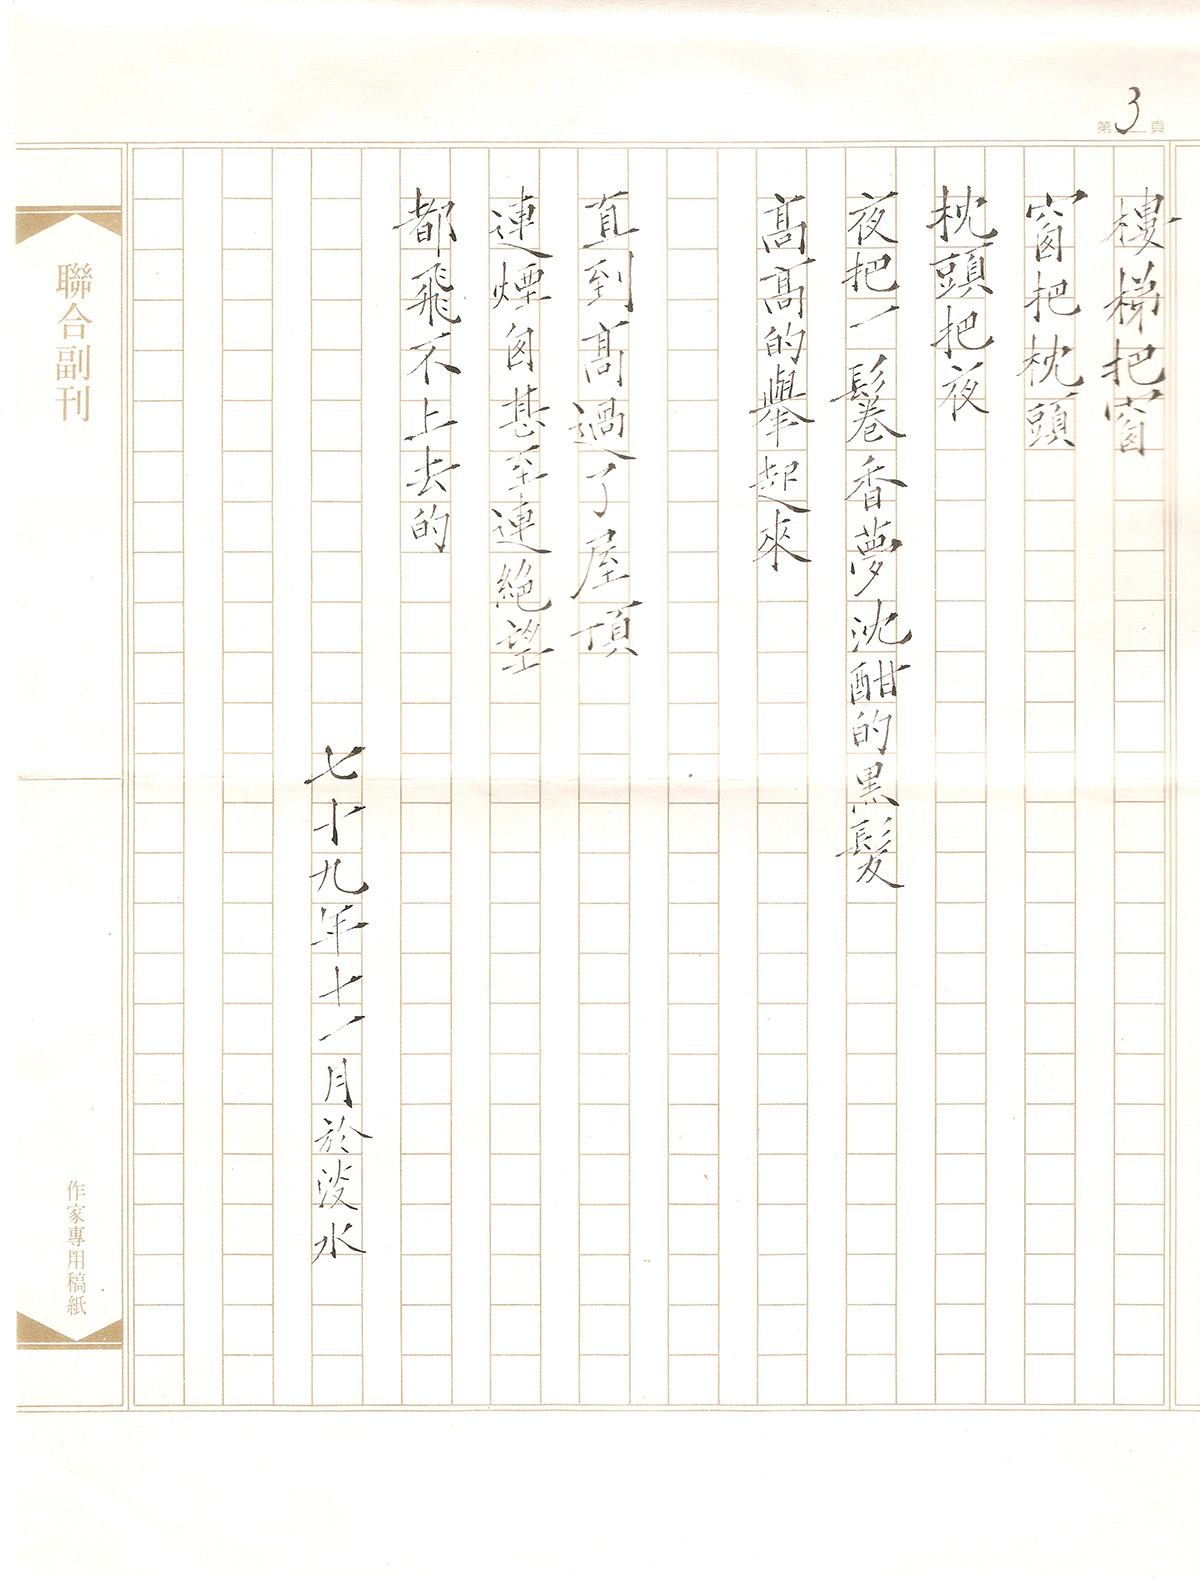 第3頁
樓梯把窗
窗把枕頭
枕頭把夜
夜把一鬈香夢沈酣的黑髮
高高的舉起來
直到高過了屋頂
連煙囪甚至連絕望
都飛不上去的
七十九年十一月於淡水
聯合副刊
作家專用稿紙